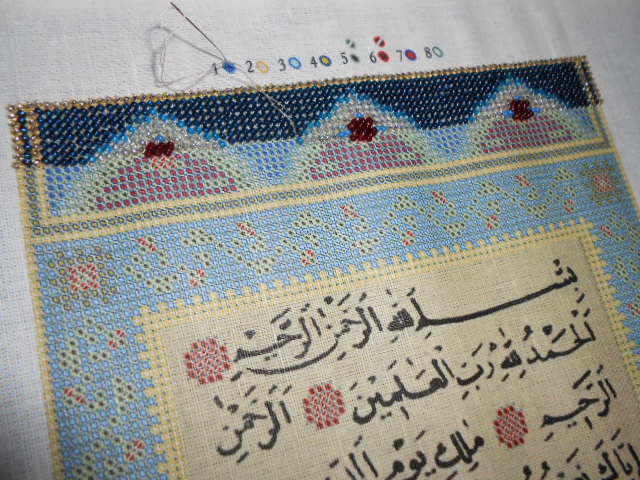 1 2 3 4 5 6 7 8
بِسْــــمِ اللهِ الرَّحْمٰنِ الرَّحِيْمِ
اَلْحَمْدُ لِلّٰهِ رَبِّ الْعَالَمِيْنَ الرَّحْمٰنِ
الرَّحِيْمِ مٰلِكِ يَوْمِ